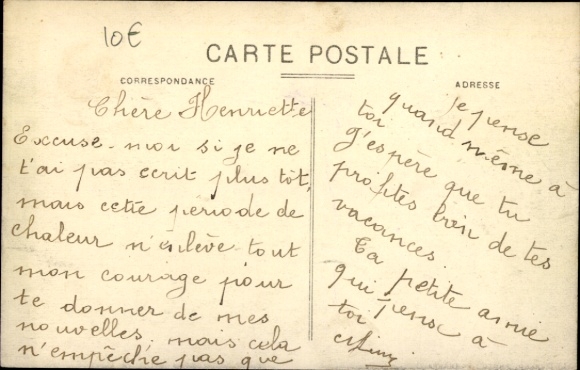 10€
CARTE POSTALE
CORRESPONDANCE
ADRESSE
Chère Henriette
Excuse-moi si je ne
t'ai pas ecrit plus tôt,
mais cette période de
chaleur n'enlève tout
mon courage pour
te donner de mes
nouvelles, mais cela
n'empêche pas que
je pense
quand même à
toi
J'espère que tu
profites bien de tes
vacances.
Ta petite amie
qui pense à
toi